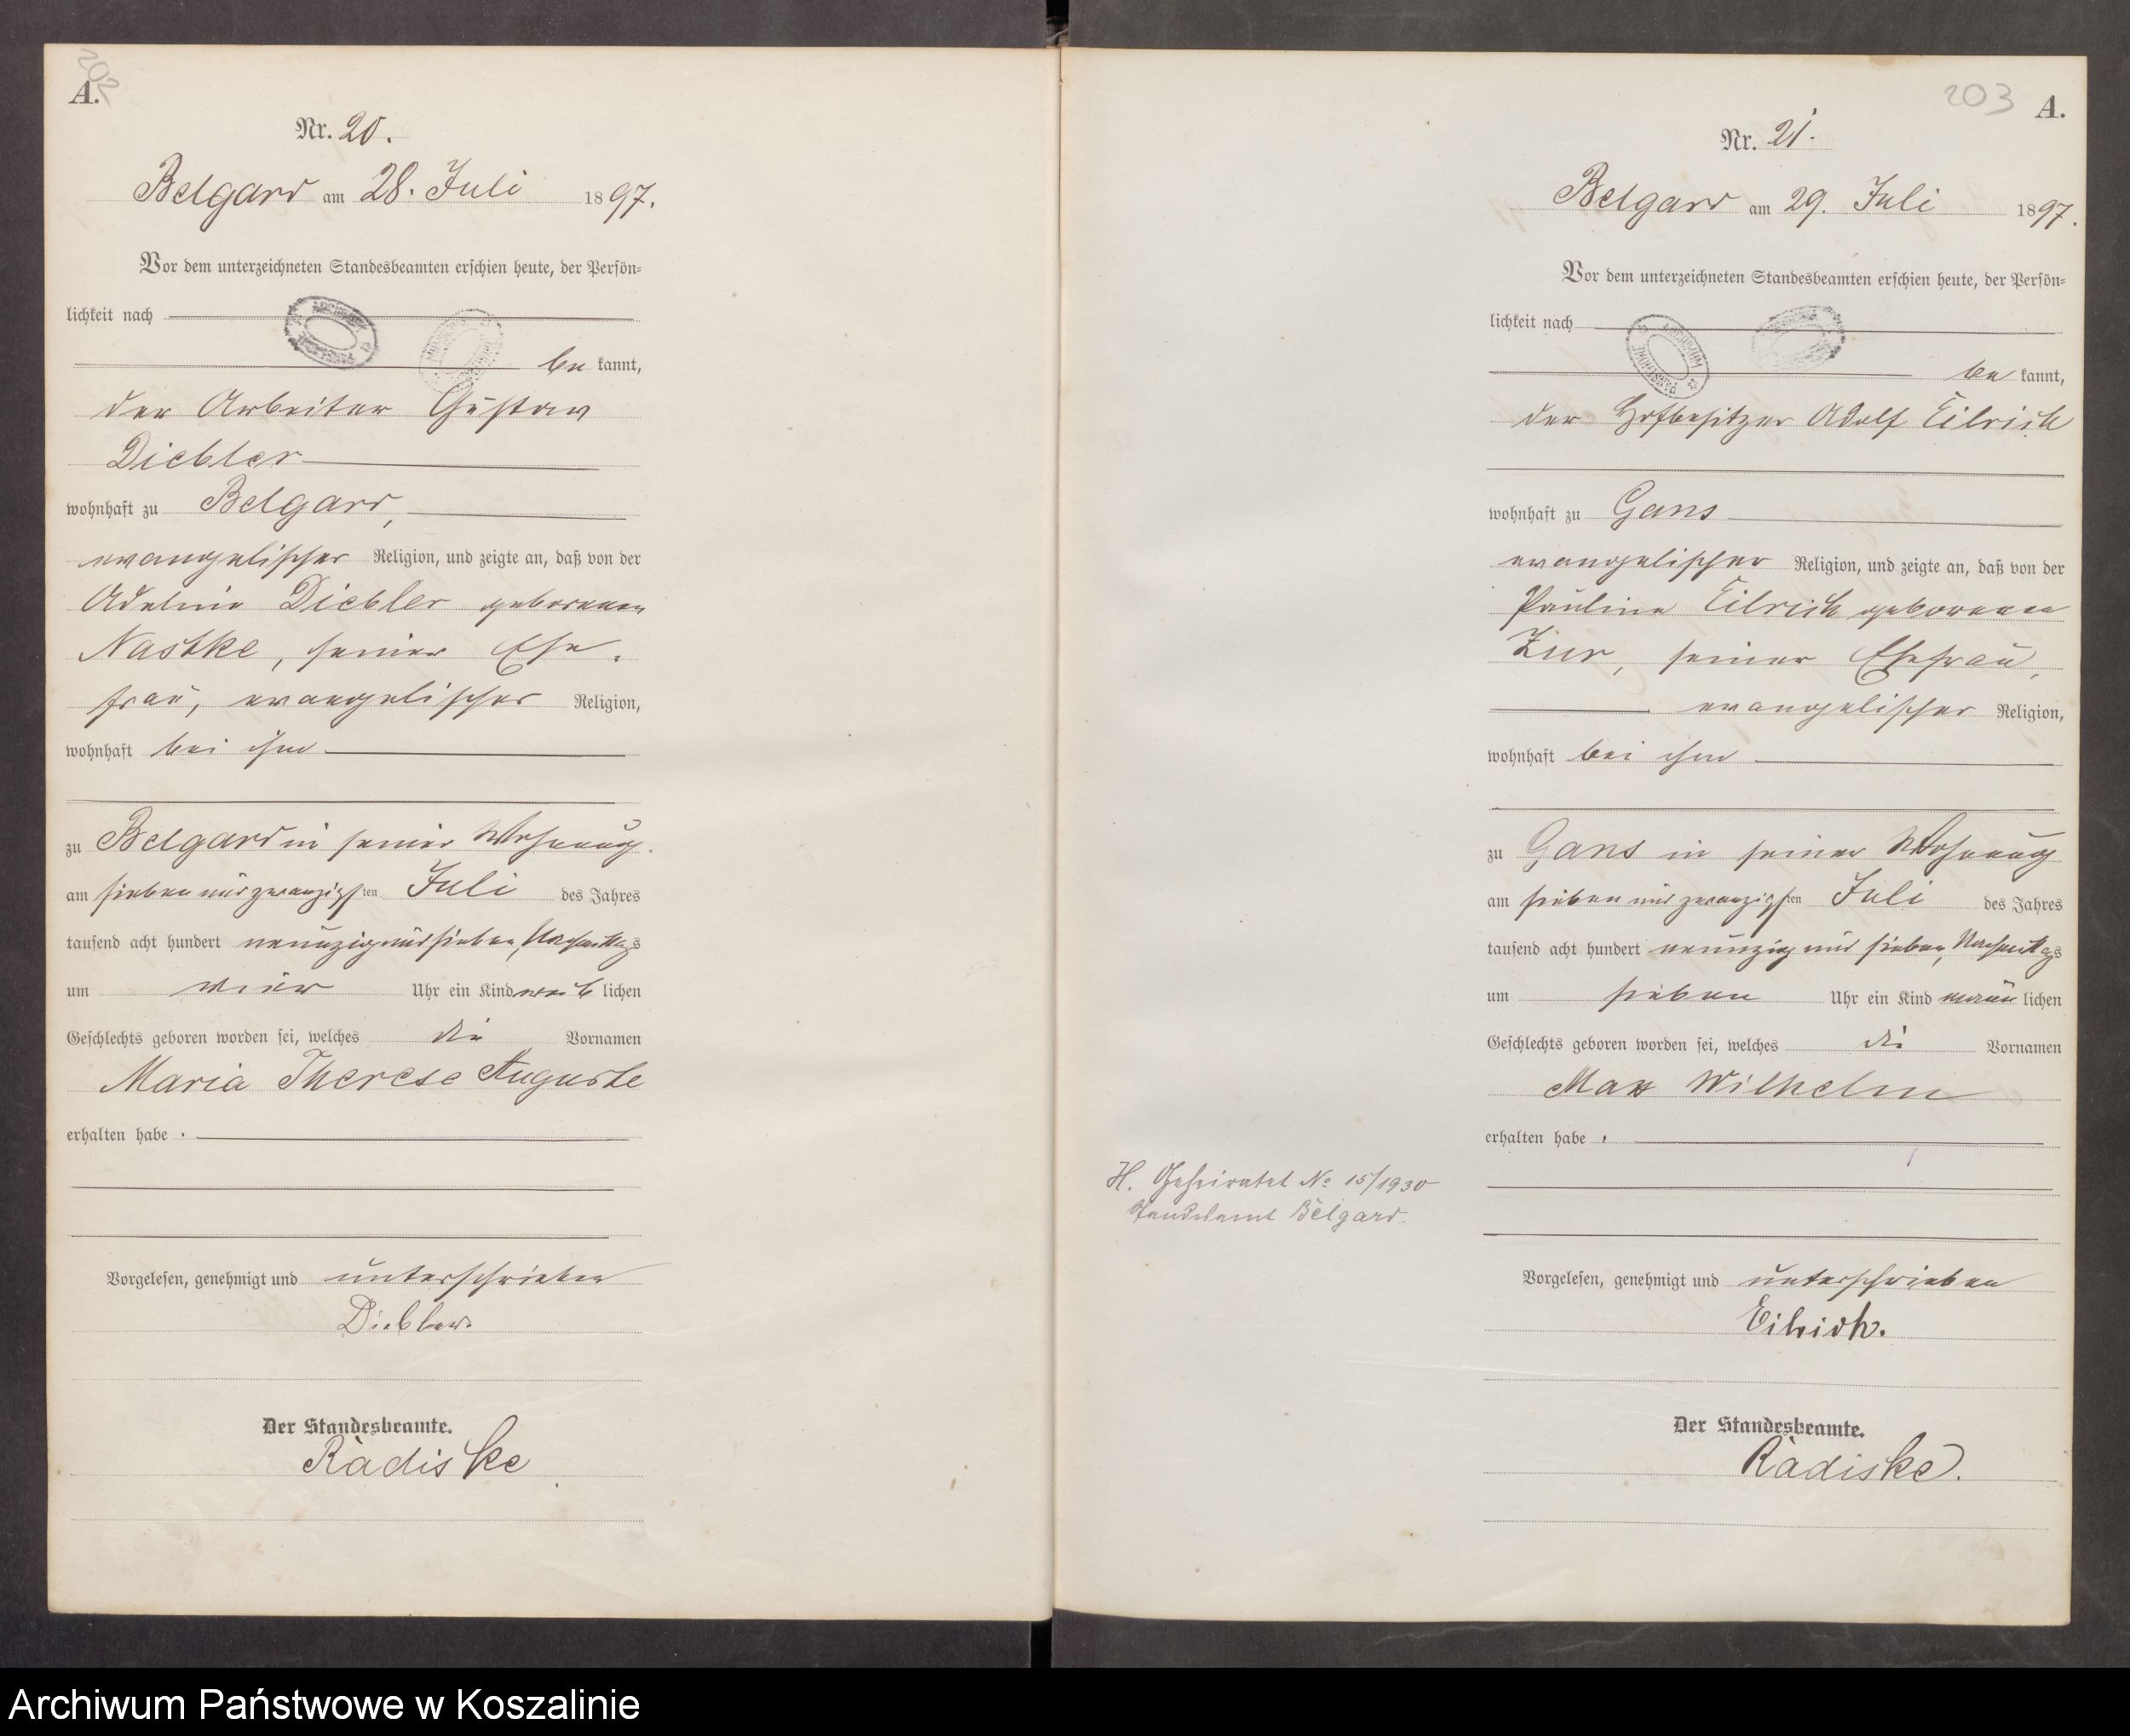 202
A.
Nr. 20.
Belgard am 28. Juli 1897.
Vor dem unterzeichneten Standesbeamten erschien heute, der Persön-
lichkeit nach
be kannt,
der Arbeiter Gustav
Diebler
wohnhaft zu Belgard,
evangelischer Religion, und zeigte an, daß von der
Adeline Diebler geborenen
Nastke, seiner Ehe-
frau, evangelischer Religion,
wohnhaft bei ihm
zu Belgard in seiner Wohnung
am sieben und zwanzigsten Juli des Jahres
tausend acht hundert neunzig und sieben, Nachmittags
um vier Uhr ein Kind weib lichen
Geschlechts geboren worden sei, welches die Vornamen
Maria Therese Auguste
erhalten habe.
Vorgelesen, genehmigt und unterschrieben
Diebler.
Der Standesbeamte.
Radiske
203
A.
Nr. 21.
Belgard am 29. Juli 1897.
Vor dem unterzeichneten Standesbeamten erschien heute, der Persön-
lichkeit nach
be kannt,
der Hofbesitzer Adolf Eilrich
wohnhaft zu Gans
evangelischer Religion, und zeigte an, daß von der
Pauline Eilrich geborenen
Zur, seiner Ehefrau,
evangelischer Religion,
wohnhaft bei ihm
zu Gans in seiner Wohnung
am sieben und zwanzigsten Juli des Jahres
tausend acht hundert neunzig und sieben, Nachmittags
um sieben Uhr ein Kind männ lichen
Geschlechts geboren worden sei, welches die Vornamen
Max Wilhelm
erhalten habe.
H. Geheiratet No 15/1930
Standesamt Belgard.
Vorgelesen, genehmigt und unterschrieben
Eilrich.
Der Standesbeamte.
Radiske.
Archiwum Państwowe w Koszalinie